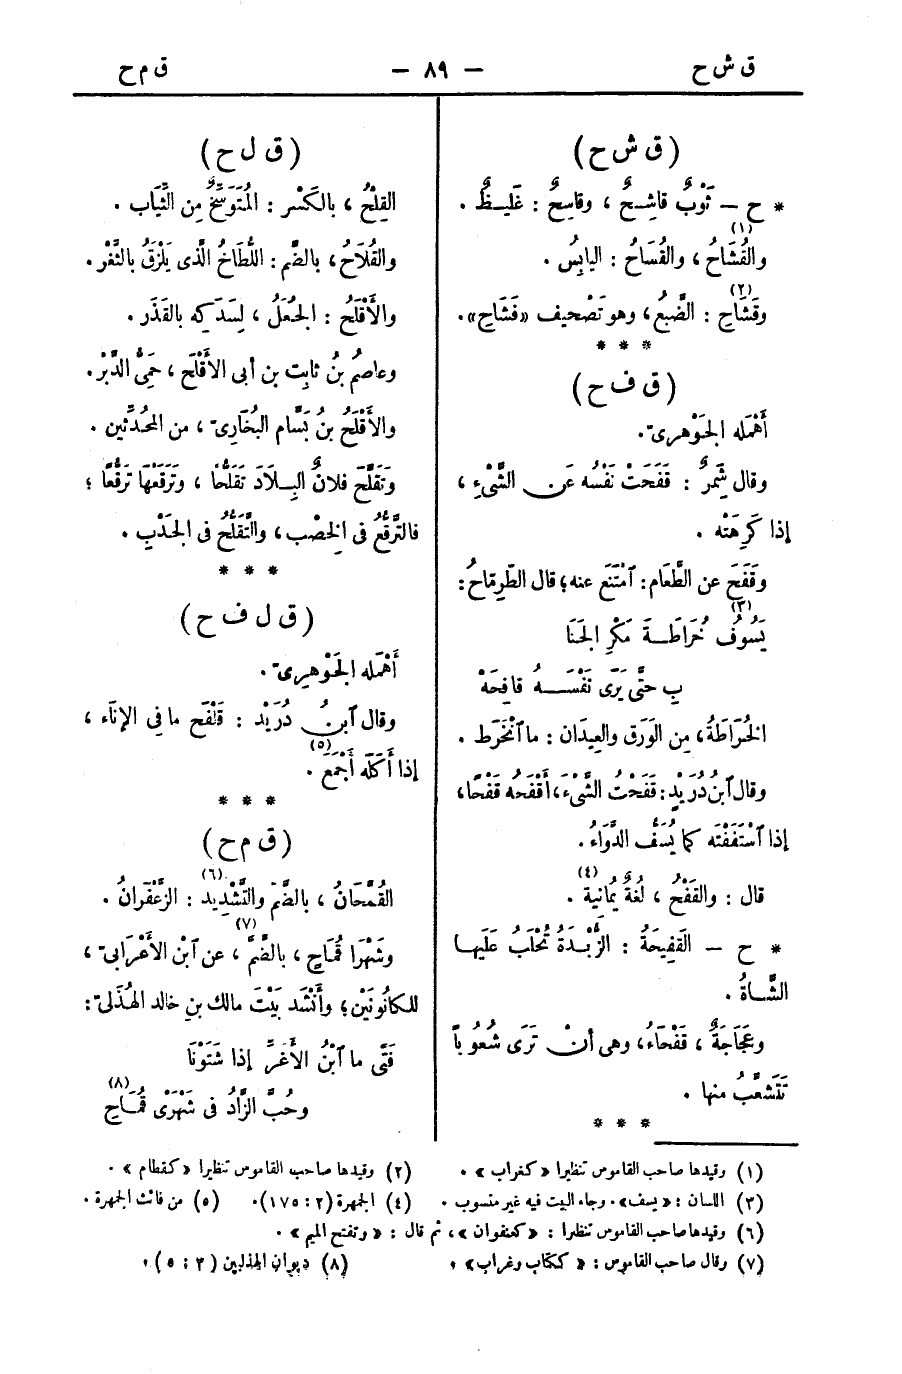 ق ش ح
— ٨٩ —
ق م ح
(ق ش ح)
* ح — ثَوْبٌ قاشِحٌ ، وقاسِحٌ : غَلِيظٌ .
والقُشَاحُ (١) ، والقُسَاحُ : اليابِسُ .
وقَشَاحِ (٢) : الضَّبُعُ ، وهو تَصْحيف «فَشَاحِ» .
* * *
(ق ف ح)
أَهْمَله الجَوْهرِىّ .
وقال شَمِرٌ : قَفَحَتْ نَفْسُه عَن الشَّىْءِ ،
إذا كَرِهَتْه .
وقَفَحَ عن الطَّعَام : ٱمْتَنَعَ عنه ؛ قال الطِّرِمّاحُ :
يَسُوفُ (٣) خُرَاطَةَ مَكْرِ الجَنَا
بِ حتَّى يَرَى نَفْسَهُ قافِحَهْ
الخُرَاطَةُ ، مِن الوَرَق والعِيدَان : ما ٱنْخَرَط .
وقال ٱبنُ دُرَيْدٍ : قَفَحْتُ الشَّىْءَ ، أَقْفَحُه قَفْحًا ،
إذا ٱسْتَفَفْتَه كما يُسَفُّ الدَّوَاءُ .
قال : والقَفْحُ ، لُغَةٌ (٤) يَمَانِية .
* ح — القَفِيحَةُ : الزُّبْدَةُ تُحْلَبُ عَلَيها
الشَّاةُ .
وعَجَاجَةٌ ، قَفْحَاءُ ، وهى أنْ تَرَى شُعُوبًا
تَتَشَعَّبُ منها .
* * *
(ق ل ح)
القِلْحُ ، بالكَسْر : المُتَوَسِّخُ مِن الثِّيَاب .
والقُلَاحُ ، بالضَّم : اللُّطَاخُ الَّذى يَلْزَقُ بالثَّغْر .
والأَقْلَحُ : الجُعَلُ ، لِسَدَكِه بالقَذَر .
وعاصِمُ بنُ ثابِت بن أبى الأَقْلَح ، حَمِىُّ الدَّبْر .
والأَقْلَحُ بنُ بَسَّام البُخَارِىّ ، من المحَدِّثين .
وتَقَلَّحَ فلانٌ البِلَادَ تَقَلُّحًا ، وتَرَقَّعَها تَرَقُّعًا ؛
فالتَّرَقُّعُ فى الخِصْب ، والتَّقَلُّحُ فى الجَدْبِ .
* * *
(ق ل ف ح)
أَهْمَله الجَوْهرِىّ .
وقال ٱبنُ دُرَيْد : قَلْفَح ما فِى الإِنَاء ،
إذا أَكَلَه أَجْمَعَ (٥) .
* * *
(ق م ح)
القُمَّحَانُ ، بالضَّمّ والتَّشْدِيد (٦) : الزَّعْفَرانُ .
وشَهْرَا قُمَاحٍ (٧) ، بالضَّمّ ، عن ٱبْن الأَعْرَابِىّ ،
للكانُونَيْن ؛ وأَنْشَد بَيْتَ مالك بنِ خالد الهُذَلىّ :
فَتًى ما ٱبْنُ الأَغَرِّ إذا شَتَوْنَا
وحُبَّ الزَّادُ فى شَهْرَىْ قُمَاحِ (٨)
(١) وقيدها صاحب القاموس تنظيرا «كغراب» .
(٢) وقيدها صاحب القاموس تنظيرا «كقطام» .
(٣) اللسان : «يسف» . وجاء البيت فيه غير منسوب .
(٤) الجمهرة (٢ : ١٧٥) .
(٥) من فائت الجمهرة .
(٦) وقيدها صاحب القاموس تنظيرا : «كعنفوان» ، ثم قال : «وتفتح الميم» .
(٧) وقال صاحب القاموس : «ككتاب وغراب» .
(٨) ديوان الهذليين (٣ : ٥) .